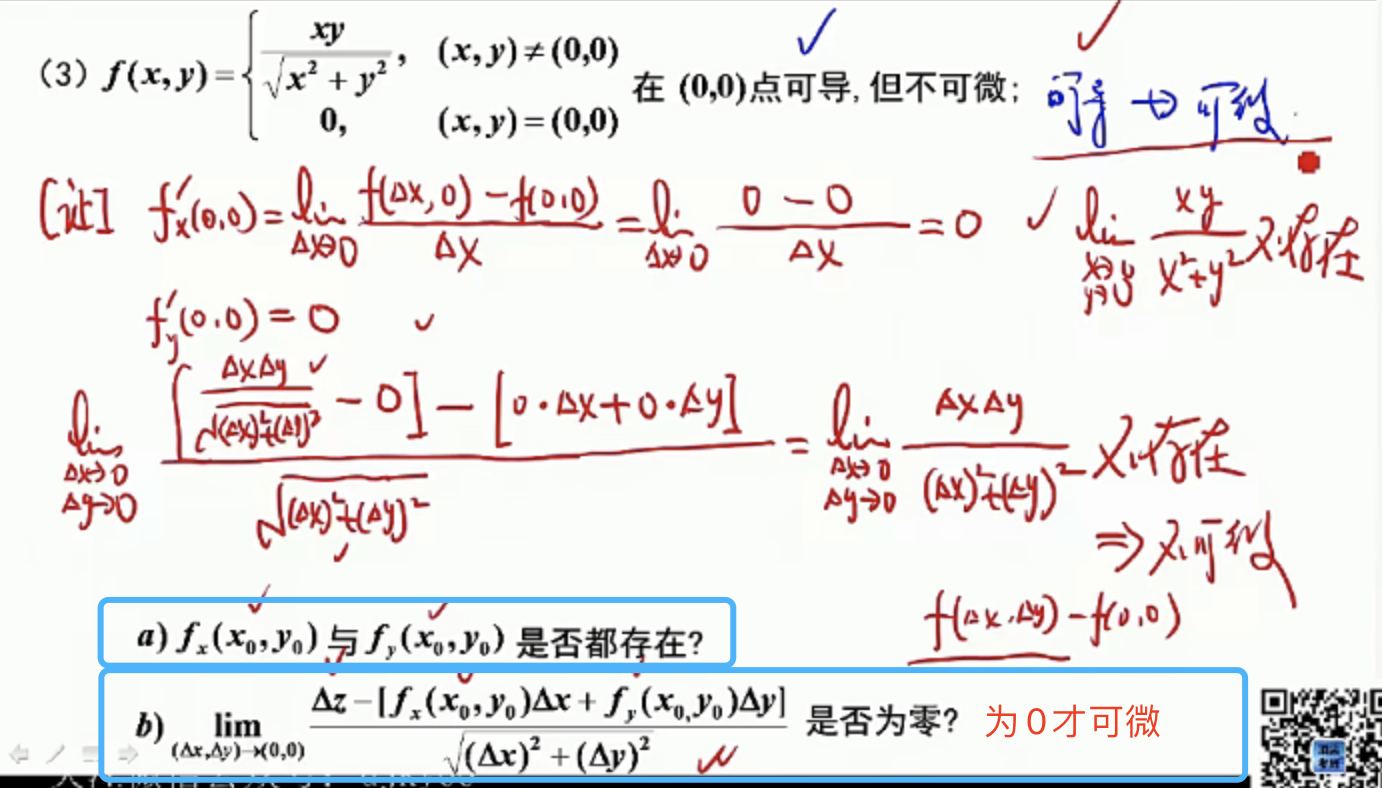 (3) f(x,y)={ xy/√(x²+y²), (x,y)≠(0,0)
0, (x,y)=(0,0) 在 (0,0)点可导,但不可微;
可导 ↛ 可微
[证] f'x(0,0)=lim Δx→0 f(Δx,0)-f(0,0)/Δx = lim Δx→0 0-0/Δx = 0
✓ lim x→0 y→0 xy/x²+y² 不存在
f'y(0,0)=0 ✓
lim Δx→0 Δy→0 [ΔxΔy/√(Δx)²+(Δy)² - 0] - [0·Δx+0·Δy] / √(Δx)²+(Δy)² = lim Δx→0 Δy→0 ΔxΔy/(Δx)²+(Δy)² 不存在
⇒ 不可微
f(Δx,Δy)-f(0,0)
a) fx(x0,y0) 与 fy(x0,y0) 是否都存在?
b) lim (Δx,Δy)→(0,0) Δz-[fx(x0,y0)Δx+fy(x0,y0)Δy] / √(Δx)²+(Δy)² 是否为零? 为0才可微